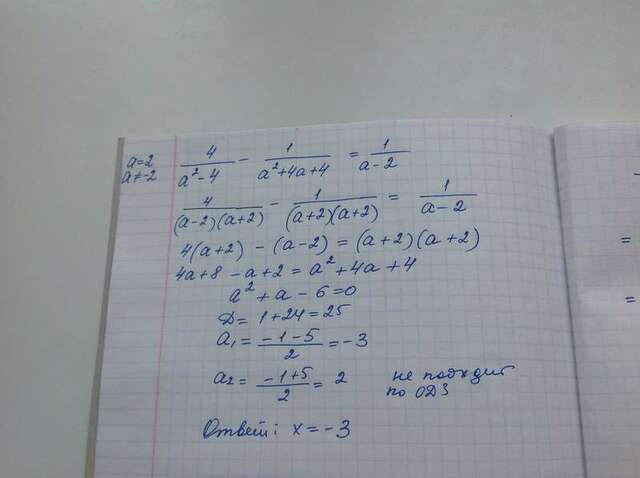 a=2
a≠-2
4/(a²-4) - 1/(a²+4a+4) = 1/(a-2)
4/((a-2)(a+2)) - 1/((a+2)(a+2)) = 1/(a-2)
4(a+2) - (a-2) = (a+2)(a+2)
4a+8 -a+2 = a²+4a+4
a²+a-6=0
D= 1+24=25
a₁= (-1-5)/2 = -3
a₂= (-1+5)/2 = 2 не подходит
по ОДЗ
Ответ: x=-3
=
=